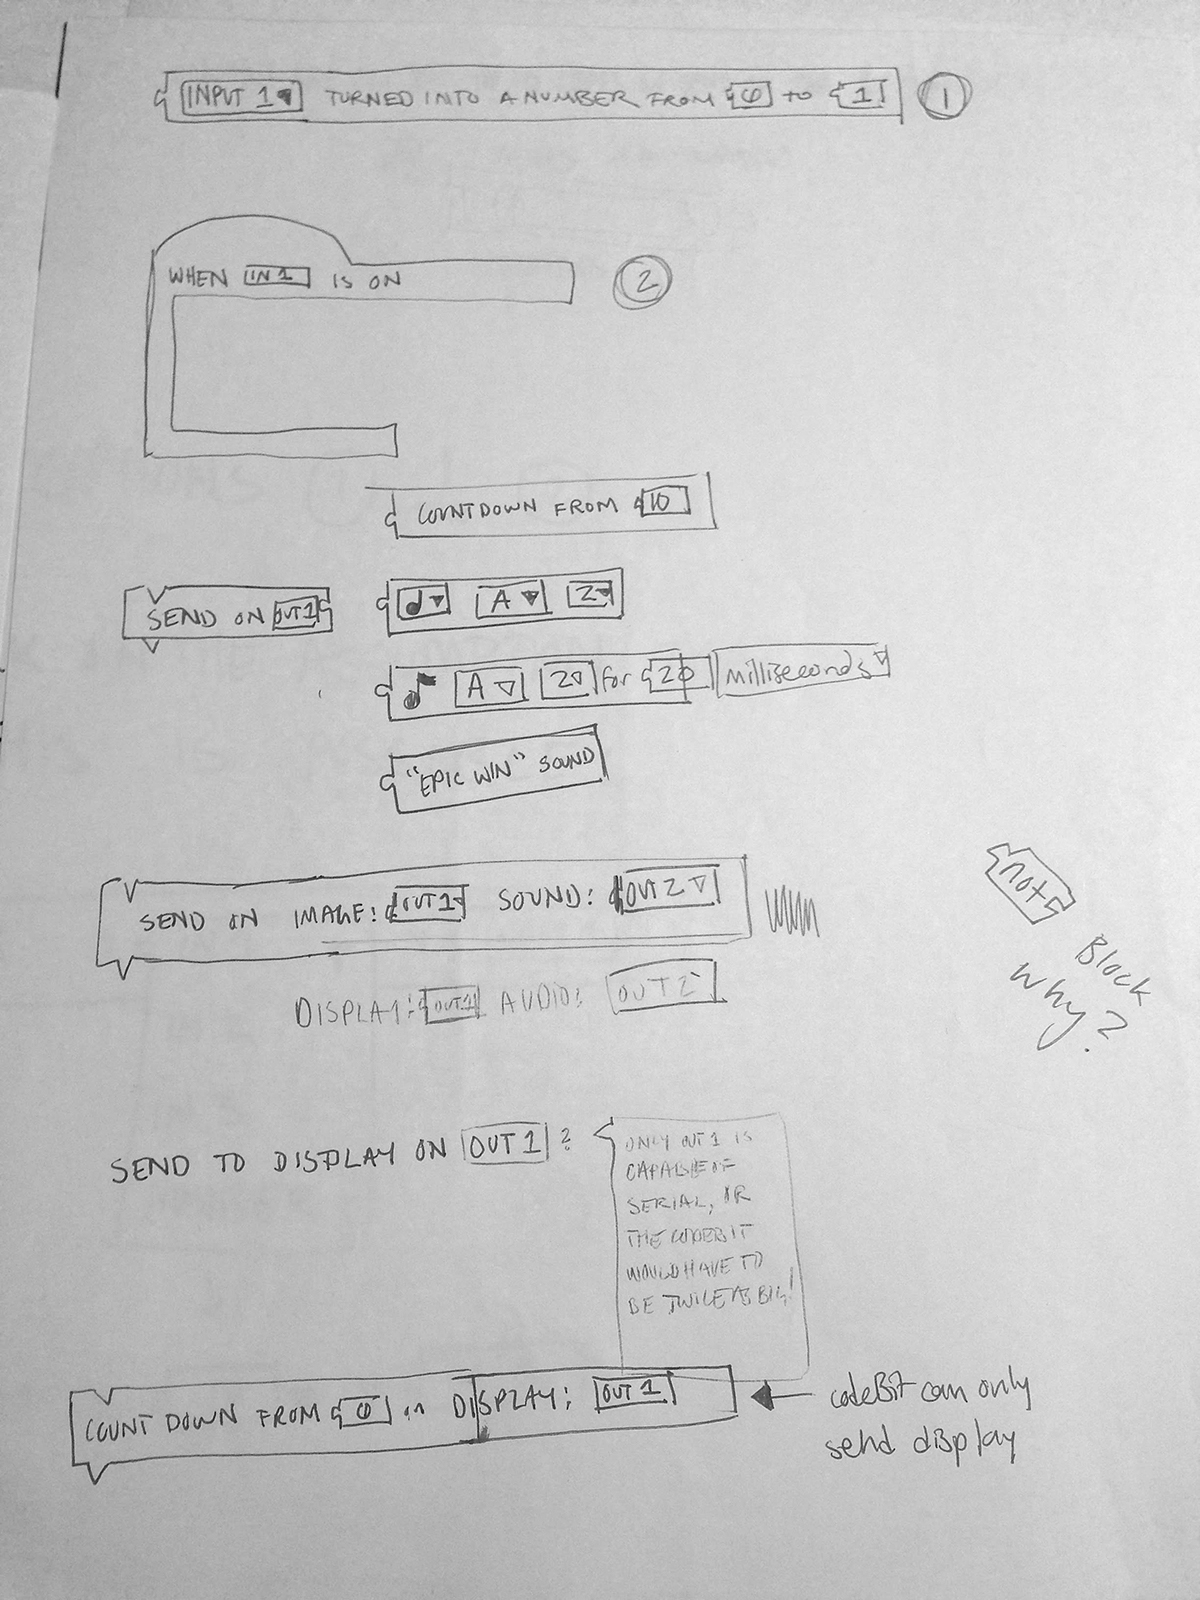 INPUT 1 TURNED INTO A NUMBER FROM 0 TO 1 1
WHEN IN 1 IS ON 2
COUNTDOWN FROM 10
SEND ON OUT1 A 2
A 2 for 20 milliseconds
"EPIC WIN" SOUND
SEND ON IMAGE: OUT1 SOUND: OUT2
DISPLAY: OUT1 AUDIO: OUT2
not
Block
why?
SEND TO DISPLAY ON OUT 1 ?
ONLY OUT 1 IS
CAPABLE OF
SERIAL, OR
THE CODEBIT
WOULD HAVE TO
BE TWICE AS BIG!
COUNT DOWN FROM 0 on DISPLAY: OUT 1
codeBit can only
send display